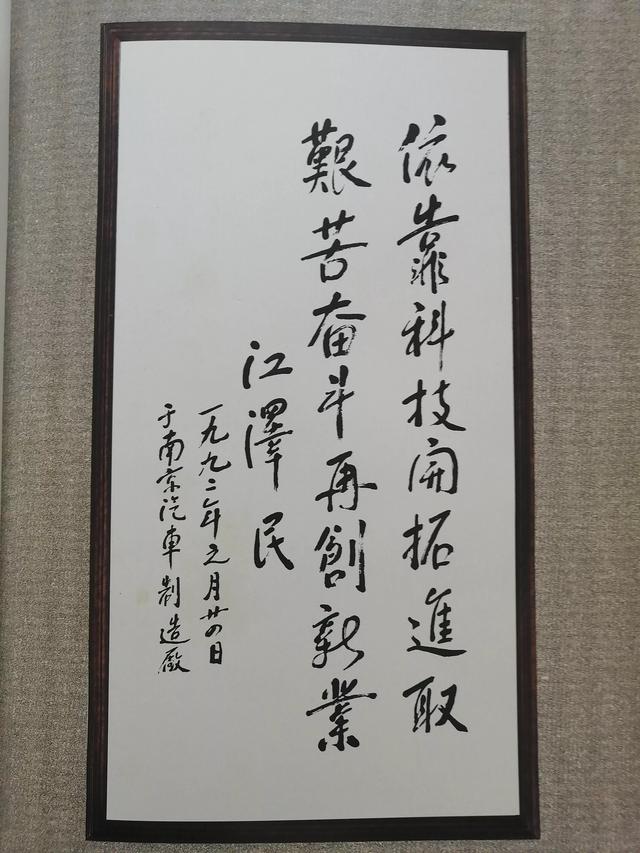 依靠科技開拓進取
艱苦奋斗再創新業
江澤民
一九九二年元月廿四日
于南京汽車制造廠